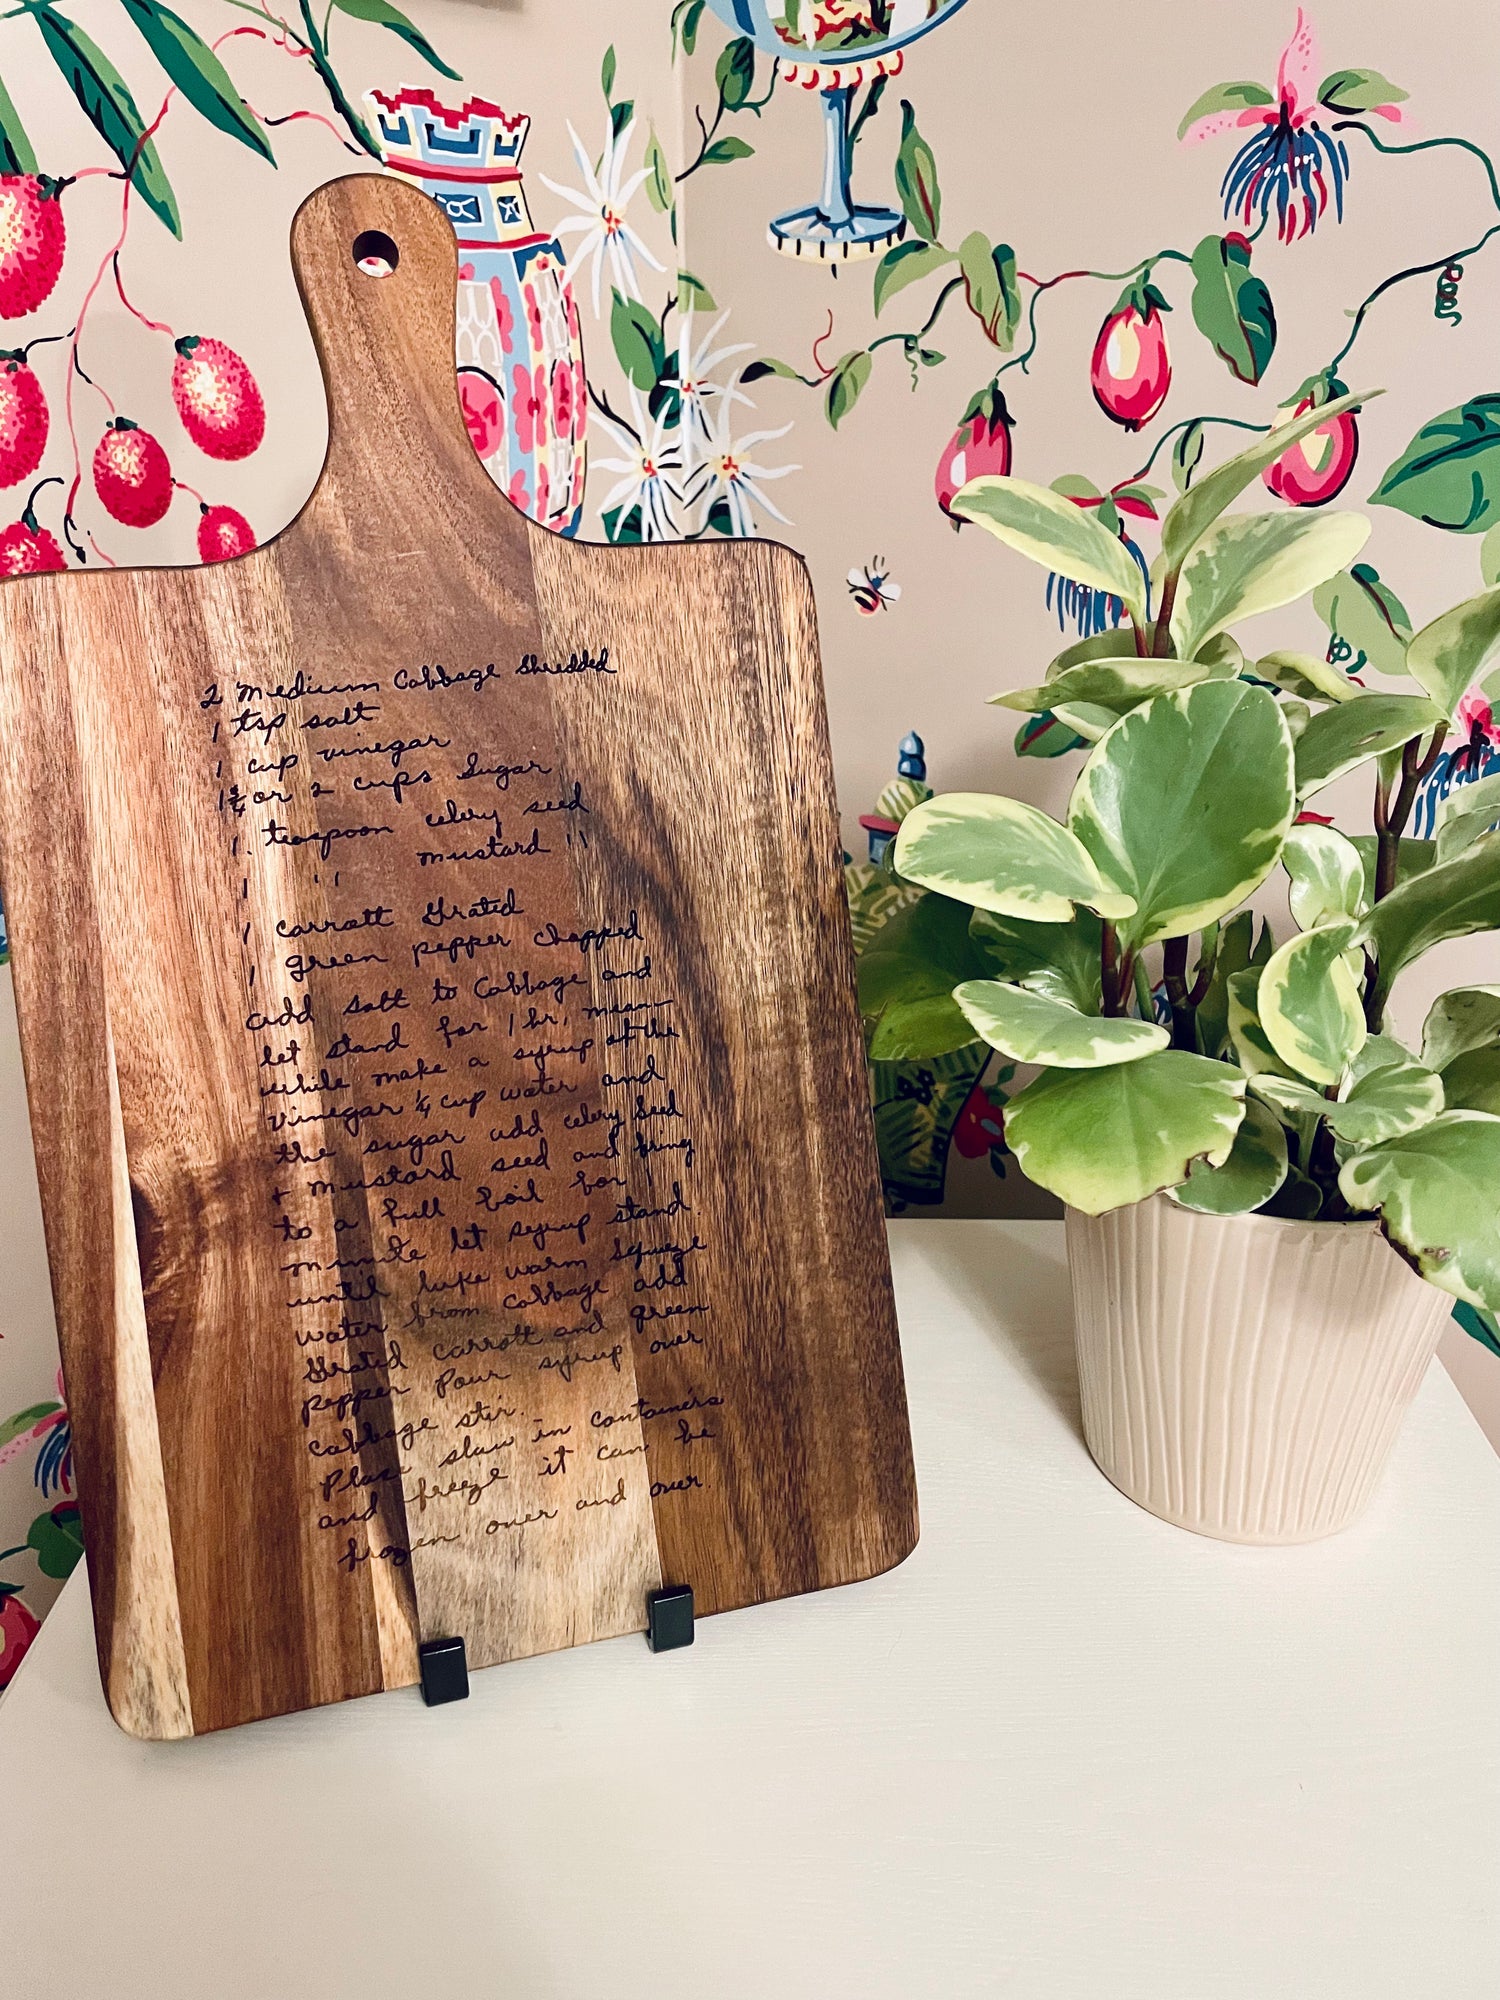 2 Medium Cabbage Shredded
1 tsp salt
1 cup vinegar
1 3/4 or 2 cups Sugar
1. teaspoon celery seed
1 '' mustard ''
1 carrott Grated
1 green pepper chopped
add salt to Cabbage and
let stand for 1 hr, mean-
while make a syrup of the
vinegar 1/4 cup water and
the sugar add celery Seed
+ mustard seed and bring
to a full boil for 1
minute let syrup stand.
until luke warm Squeeze
water from cabbage add
Grated carrott and green
pepper Pour syrup over
cabbage stir.
Place slaw in containers
and freeze it can be
frozen over and over.